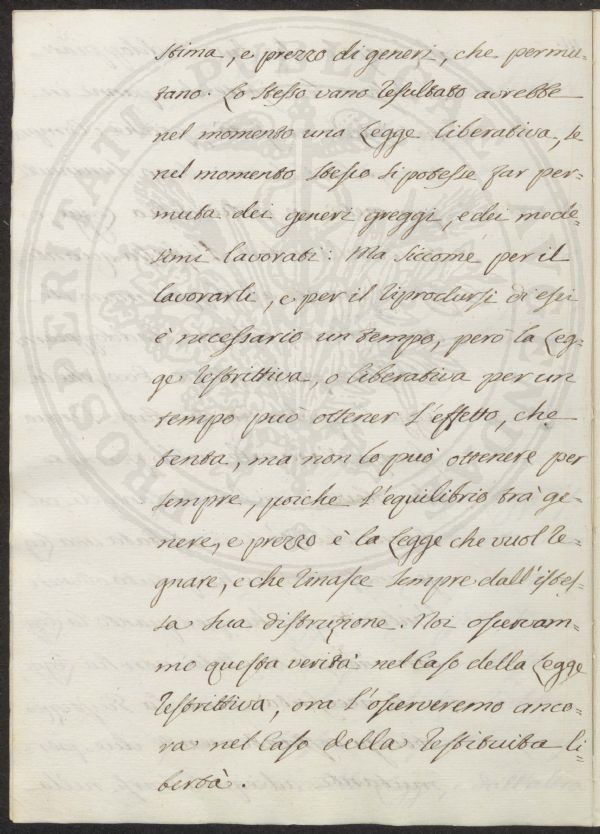 stima, e prezzo di generi, che permu-
tano. Lo stesso vano resultato avrebbe
nel momento una Legge liberativa, se
nel momento stesso si potesse far per-
muta dei generi greggi, e dei mede-
simi lavorati: Ma siccome per il
lavorarli, e per il riprodursi di essi
è necessario un tempo, però la Leg-
ge restrittiva, o liberativa per un
tempo può ottener l'effetto, che
tenta, ma non lo può ottenere per
sempre, poiche l'equilibrio trà ge-
nere, e prezzo è la Legge che vuol re-
gnare, e che rinasce sempre dall'istes-
sa sua distruzione. Noi osservam-
mo questa verità nel Caso della Legge
restrittiva, ora l'osserveremo anco-
ra nel Caso della restituita li-
bertà.